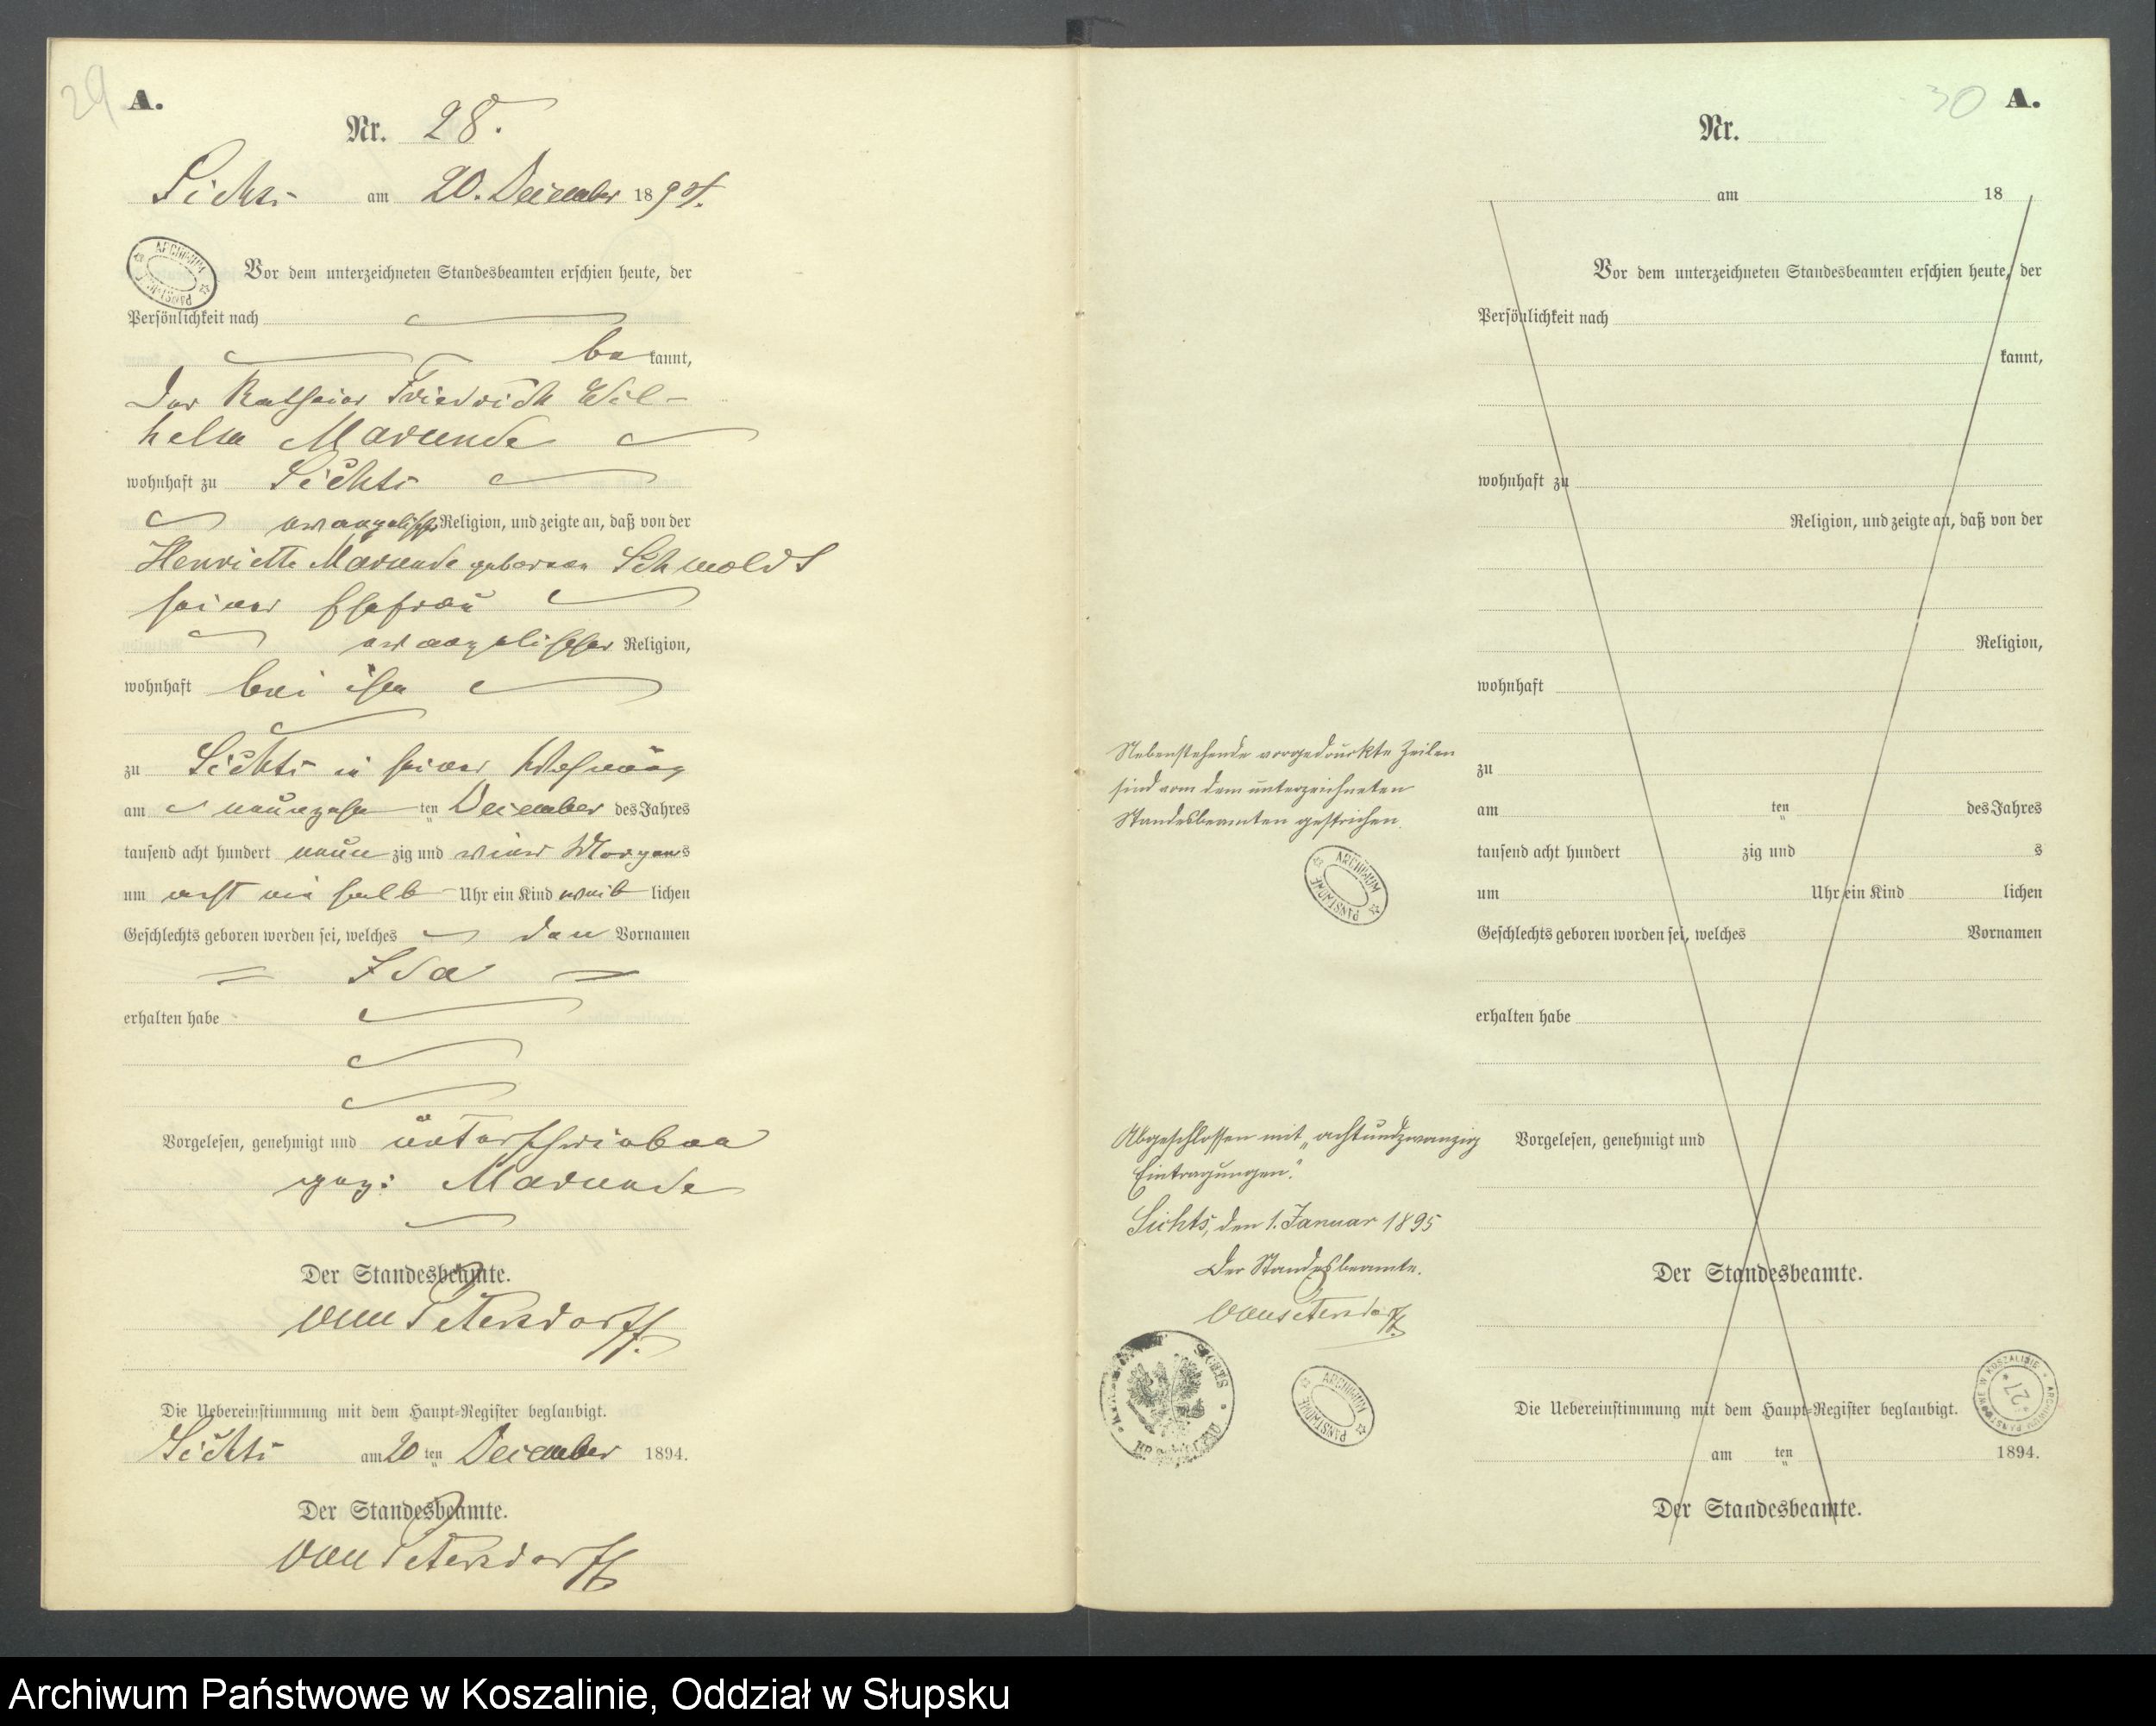 29
A.
Nr. 28.
Sichts am 20. December 1894.
ARCHIWUM PAŃSTWOWE
Vor dem unterzeichneten Standesbeamten erschien heute, der
Persönlichkeit nach
bekannt,
der Friedrich Wil-
helm Marunde
wohnhaft zu Sichts
evangelischer Religion, und zeigte an, daß von der
Henriette Marunde geborenen Schmoldt
seiner Ehefrau
evangelischer Religion,
wohnhaft bei ihm
zu Sichts in seiner Wohnung
am neunzehnten December des Jahres
tausend acht hundert neunzig und vier Morgens
um acht ein halb Uhr ein Kind weiblichen
Geschlechts geboren worden sei, welches den Vornamen
Ida
erhalten habe
Vorgelesen, genehmigt und unterschrieben
gez: Marunde
Der Standesbeamte.
von Petersdorff.
Die Uebereinstimmung mit dem Haupt-Register beglaubigt.
Sichts am 20ten December 1894.
Der Standesbeamte.
von Petersdorff
30
A.
Nr.
am 18
Vor dem unterzeichneten Standesbeamten erschien heute, der
Persönlichkeit nach
kannt,
wohnhaft zu
Religion, und zeigte an, daß von der
Religion,
wohnhaft
zu
am ten des Jahres
tausend acht hundert zig und s
um Uhr ein Kind lichen
Geschlechts geboren worden sei, welches Vornamen
erhalten habe
Vorgelesen, genehmigt und
Der Standesbeamte.
Die Uebereinstimmung mit dem Haupt-Register beglaubigt.
am ten 1894.
Der Standesbeamte.
Nebenstehende vorgedruckte Zeilen
sind von dem unterzeichneten
Standesbeamten gestrichen.
ARCHIWUM PAŃSTWOWE
Abgeschlossen mit „achtundzwanzig
Eintragungen."
Sichts, den 1. Januar 1895
Der Standesbeamte.
von Petersdorff.
SICHTS
ARCHIWUM PAŃSTWOWE
ARCHIWUM PAŃSTWOWE W KOSZALINIE
*27*
Archiwum Państwowe w Koszalinie, Oddział w Słupsku